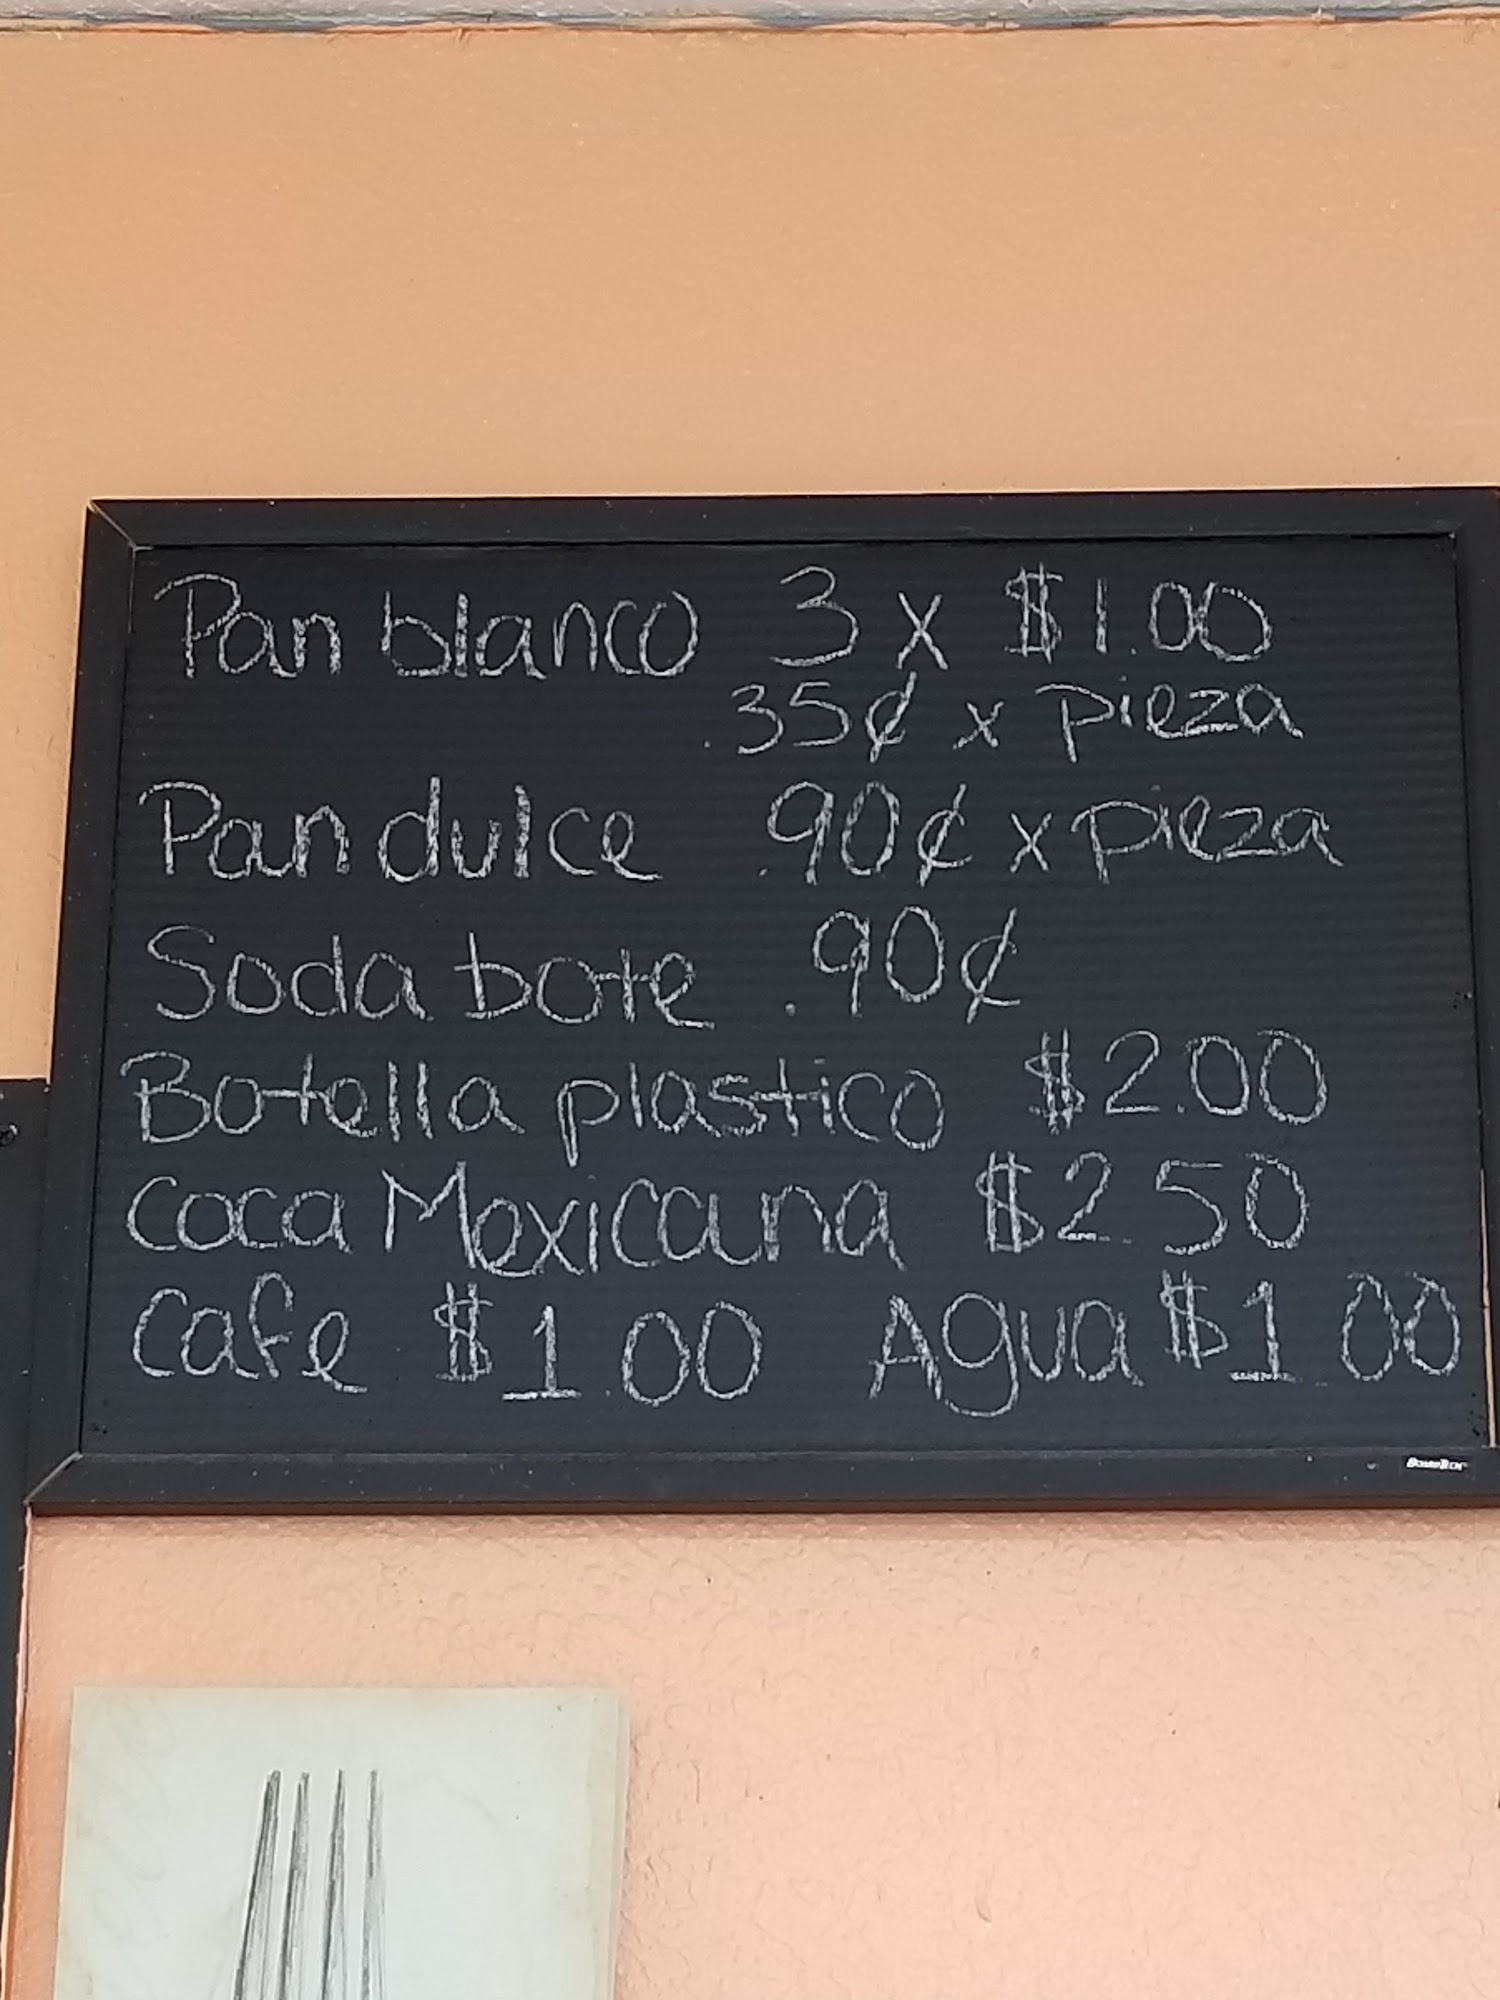 Pan blanco 3 x $1.00
.35¢ x pieza
Pan dulce .90¢ x pieza
Soda bote .90¢
Botella plastico $2.00
Coca Mexicana $2.50
Cafe $1.00 Agua $1.00